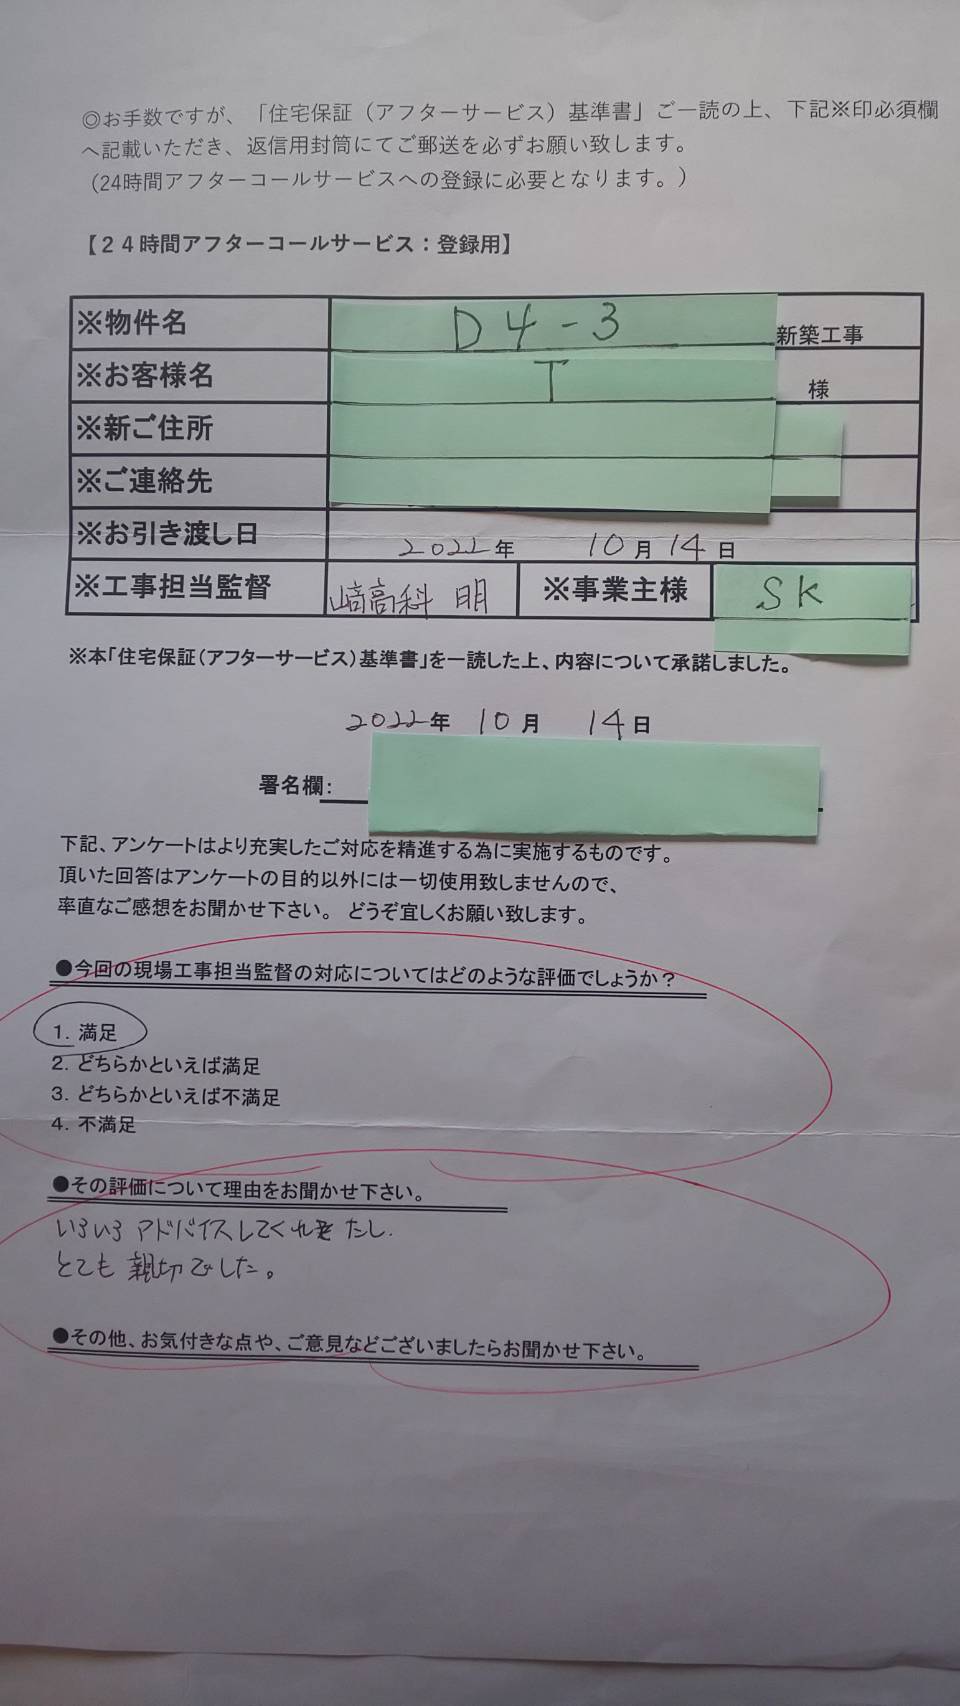 ◎お手数ですが、「住宅保証（アフターサービス）基準書」ご一読の上、下記※印必須欄
へ記載いただき、返信用封筒にてご郵送を必ずお願い致します。
（24時間アフターコールサービスへの登録に必要となります。）
【２４時間アフターコールサービス：登録用】
※物件名 D4-3 新築工事
※お客様名 T 様
※新ご住所
※ご連絡先
※お引き渡し日 2022年 10月14日
※工事担当監督 﨑高科 明 ※事業主様 SK
※本「住宅保証（アフターサービス）基準書」を一読した上、内容について承諾しました。
2022年 10月 14日
署名欄：
下記、アンケートはより充実したご対応を精進する為に実施するものです。
頂いた回答はアンケートの目的以外には一切使用致しませんので、
率直なご感想をお聞かせ下さい。 どうぞ宜しくお願い致します。
●今回の現場工事担当監督の対応についてはどのような評価でしょうか？
１．満足
２．どちらかといえば満足
３．どちらかといえば不満足
４．不満足
●その評価について理由をお聞かせ下さい。
いろいろアドバイスしてくれたし、
とても親切でした。
●その他、お気付きな点や、ご意見などございましたらお聞かせ下さい。